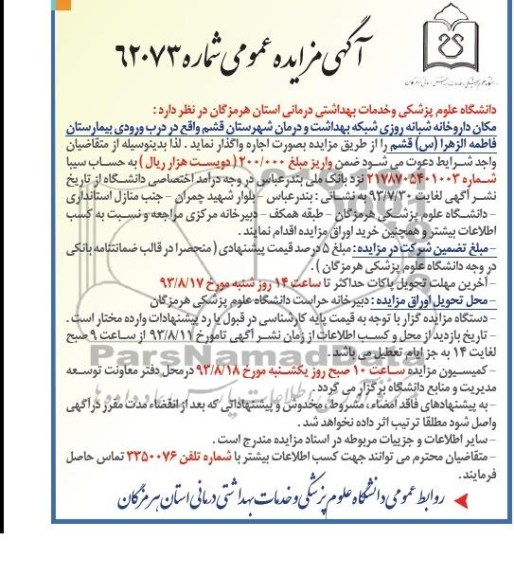 آگهی مزایده عمومی شماره ۶۲۰۷۳
دانشگاه علوم پزشکی وخدمات بهداشتی درمانی استان هرمزگان در نظر دارد :
مکان داروخانه شبانه روزی شبکه بهداشت و درمان شهرستان قشم واقع در درب ورودی بیمارستان
فاطمه الزهرا (س) قشم را از طریق مزایده بصورت اجاره واگذار نماید . لذا بدینوسیله از متقاضیان
واجد شرایط دعوت می شود ضمن واریز مبلغ ۲۰۰/۰۰۰ ( دویست هزار ریال ) به حساب سیبا
شماره ۲۱۷۸۷۰۵۴۰۱۰۰۳ نزد بانک ملی بندرعباس در وجه درآمد اختصاصی دانشگاه از تاریخ
نشر آگهی لغایت ۹۳/۷/۳۰ به نشانی : بندرعباس – بلوار شهید چمران – جنب منازل استانداری
– دانشگاه علوم پزشکی هرمزگان – طبقه همکف – دبیرخانه مرکزی مراجعه و نسبت به کسب
اطلاعات بیشتر و همچنین خرید اوراق مزایده اقدام نمایند .
– مبلغ تضمین شرکت در مزایده : مبلغ ۵ درصد قیمت پیشنهادی ( منحصرا در قالب ضمانتنامه بانکی
در وجه دانشگاه علوم پزشکی هرمزگان ) .
– آخرین مهلت تحویل پاکات حداکثر تا ساعت ۱۴ روز شنبه مورخ ۹۳/۸/۱۷
– محل تحویل اوراق مزایده : دبیرخانه حراست دانشگاه علوم پزشکی هرمزگان
– دستگاه مزایده گزار با توجه به قیمت پایه کارشناسی در قبول یا رد پیشنهادات وارده مختار است .
– تاریخ بازدید از محل و کسب اطلاعات از زمان نشر آگهی تا مورخ ۹۳/۸/۱۱ از ساعت ۹ صبح
لغایت ۱۴ به جز ایام تعطیل می باشد .
– کمیسیون مزایده ساعت ۱۰ صبح روز یکشنبه مورخ ۹۳/۸/۱۸ در محل دفتر معاونت توسعه
مدیریت و منابع دانشگاه برگزار می گردد .
– به پیشنهادهای فاقد امضاء، مشروط، مخدوش و پیشنهاداتی که بعد از انقضاء مدت مقرر در آگهی
واصل شود مطلقا ترتیب اثر داده نخواهد شد .
– سایر اطلاعات و جزییات مربوطه در اسناد مزایده مندرج است .
– متقاضیان محترم می توانند جهت کسب اطلاعات بیشتر با شماره تلفن ۳۳۵۰۰۷۶ تماس حاصل
فرمایند .
روابط عمومی دانشگاه علوم پزشکی وخدمات بهداشتی درمانی استان هرمزگان
ParsNamadData